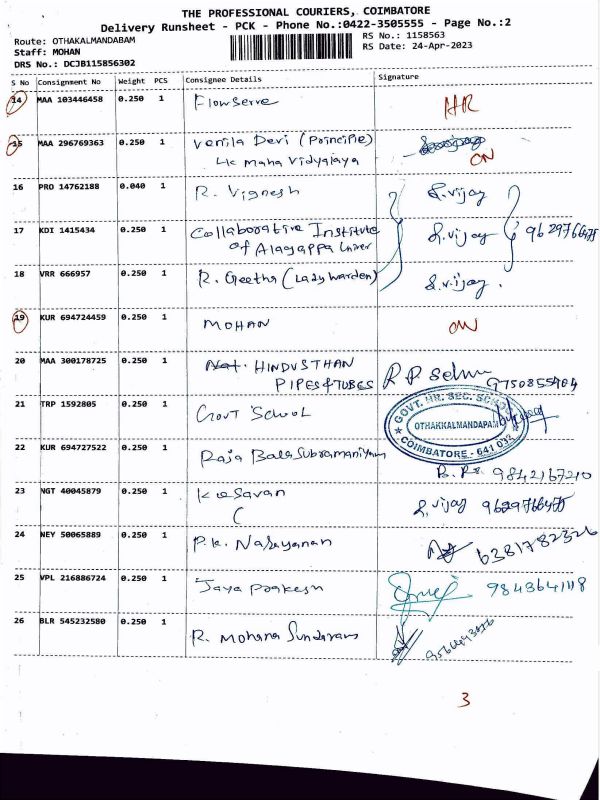 THE PROFESSIONAL COURIERS, COIMBATORE
Delivery Runsheet - PCK - Phone No.:0422-3505555 - Page No.:2
Route: OTHAKALMANDABAM
Staff: MOHAN
DRS No.: DCJB115856302
RS No.: 1158563
RS Date: 24-Apr-2023
S No Consignment No Weight PCS Consignee Details Signature
14 MAA 103446458 0.250 1 Flowserve HR
15 MAA 296769363 0.250 1 Venila Devi (Principle)
Maha Vidyalaya ON
16 PRO 14762188 0.040 1 R. Vignesh S.vijay
17 KDI 1415434 0.250 1 Collaborative Institute S.vijay 9629766475
of Alagappa Univer
18 VRR 666957 0.250 1 R. Geetha (Lady Warden) S.vijay.
19 KUR 694724459 0.250 1 MOHAN ON
20 MAA 300178725 0.250 1 HINDUSTHAN
PIPES & TUBES R P Selvu 9750855404
21 TRP 1592805 0.250 1 Govt School
GOVT. HR. SEC. SCHOOL
OTHAKKALMANDAPAM
COIMBATORE - 641 032
22 KUR 694727522 0.250 1 Raja Bala Subramaniyam
9842167210
23 NGT 40045879 0.250 1 Kesavan S.vijay 9629766475
24 NEY 50065889 0.250 1 P.K. Narayanan 6381782326
25 VPL 216886724 0.250 1 Jaya Prakesh
26 BLR 545232580 0.250 1 R. Mohana Sundaram
3